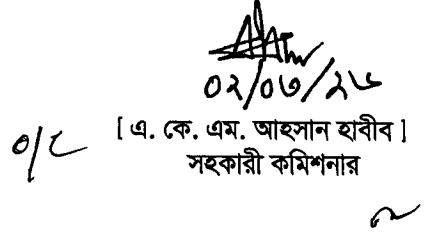 ০২/০৩/২৬
[ এ. কে. এম. আহসান হাবীব ]
সহকারী কমিশনার